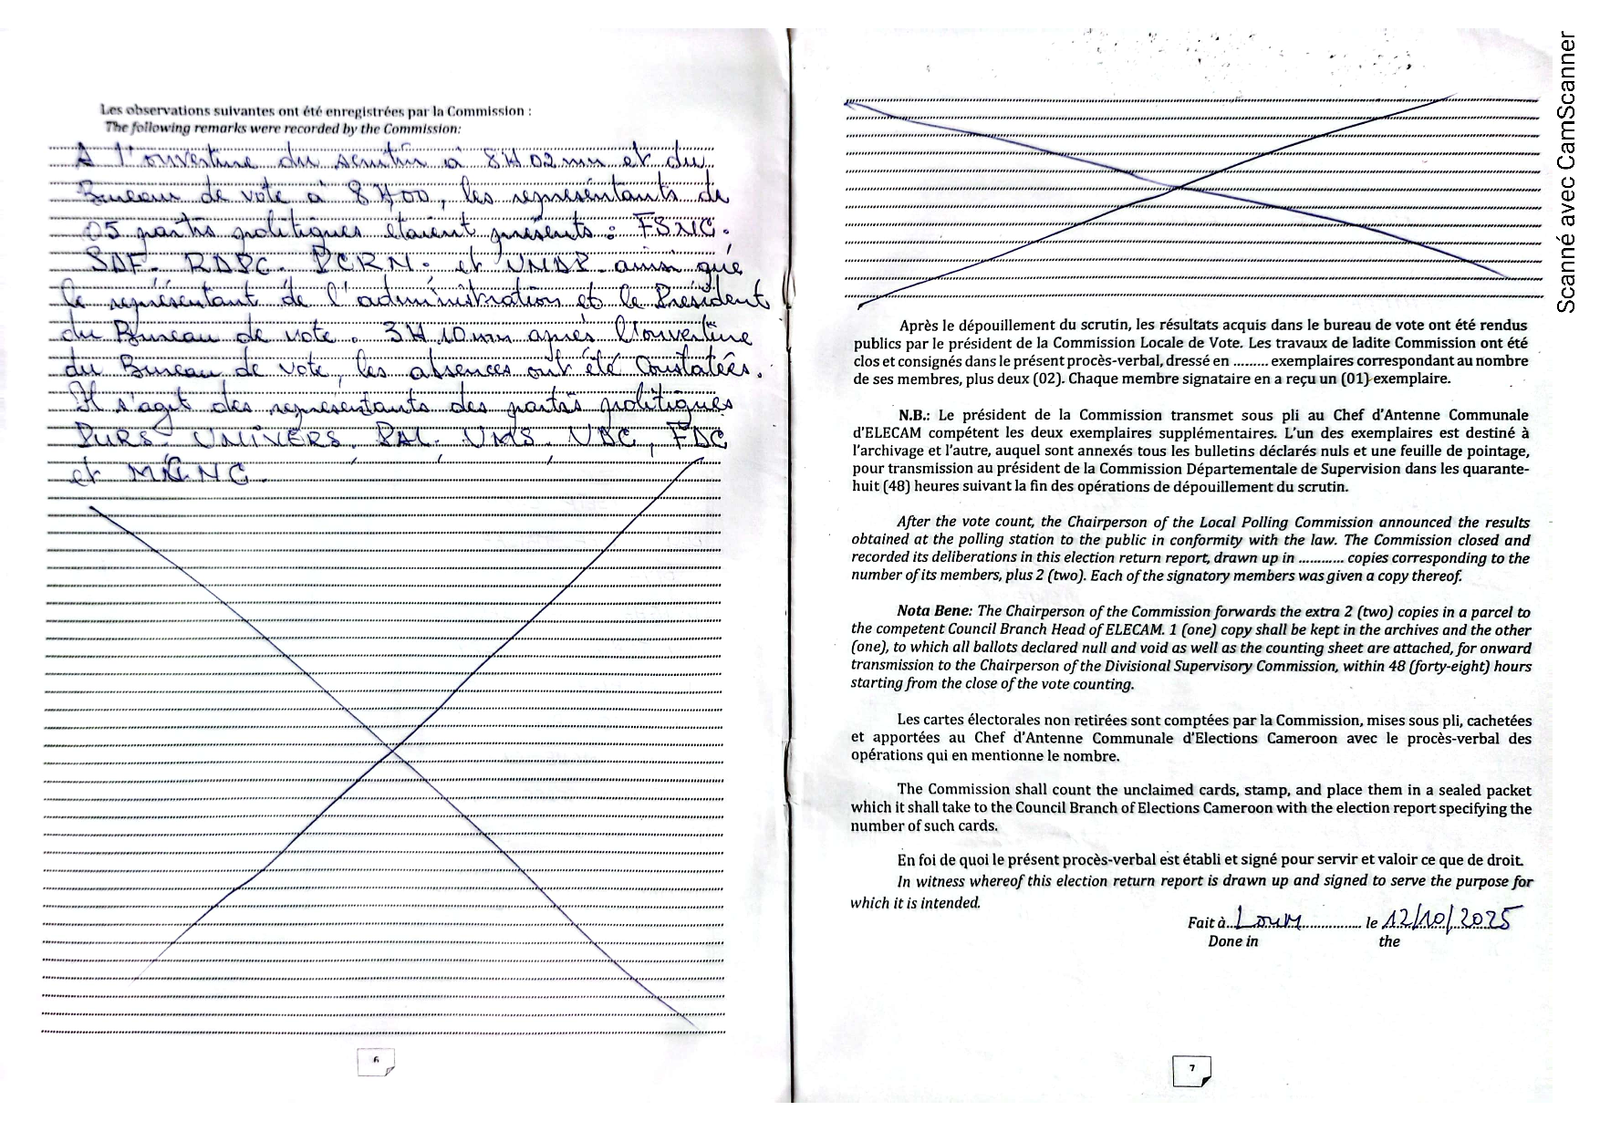 Les observations suivantes ont été enregistrées par la Commission :
The following remarks were recorded by the Commission:
A l'ouverture du scrutin à 8H02mn et du
Bureau de vote à 8H00, les représentants de
05 partis politiques étaient présents : FSNC.
SDF. RDPC. PCRN. et UNDP ainsi que
le représentant de l'administration et le Président
du Bureau de vote. 3H10mn après l'ouverture
du Bureau de vote, les absences ont été Constatées.
Il s'agit des représentants des partis politiques
PURS, UNIVERS, PAL, UMS, UDC, FDC
et MCNC.
6
Après le dépouillement du scrutin, les résultats acquis dans le bureau de vote ont été rendus
publics par le président de la Commission Locale de Vote. Les travaux de ladite Commission ont été
clos et consignés dans le présent procès-verbal, dressé en ......... exemplaires correspondant au nombre
de ses membres, plus deux (02). Chaque membre signataire en a reçu un (01) exemplaire.
N.B.: Le président de la Commission transmet sous pli au Chef d'Antenne Communale
d'ELECAM compétent les deux exemplaires supplémentaires. L'un des exemplaires est destiné à
l'archivage et l'autre, auquel sont annexés tous les bulletins déclarés nuls et une feuille de pointage,
pour transmission au président de la Commission Départementale de Supervision dans les quarante-
huit (48) heures suivant la fin des opérations de dépouillement du scrutin.
After the vote count, the Chairperson of the Local Polling Commission announced the results
obtained at the polling station to the public in conformity with the law. The Commission closed and
recorded its deliberations in this election return report, drawn up in ............ copies corresponding to the
number of its members, plus 2 (two). Each of the signatory members was given a copy thereof.
Nota Bene: The Chairperson of the Commission forwards the extra 2 (two) copies in a parcel to
the competent Council Branch Head of ELECAM. 1 (one) copy shall be kept in the archives and the other
(one), to which all ballots declared null and void as well as the counting sheet are attached, for onward
transmission to the Chairperson of the Divisional Supervisory Commission, within 48 (forty-eight) hours
starting from the close of the vote counting.
Les cartes électorales non retirées sont comptées par la Commission, mises sous pli, cachetées
et apportées au Chef d'Antenne Communale d'Elections Cameroon avec le procès-verbal des
opérations qui en mentionne le nombre.
The Commission shall count the unclaimed cards, stamp, and place them in a sealed packet
which it shall take to the Council Branch of Elections Cameroon with the election report specifying the
number of such cards.
En foi de quoi le présent procès-verbal est établi et signé pour servir et valoir ce que de droit.
In witness whereof this election return report is drawn up and signed to serve the purpose for
which it is intended.
Fait à Loum le 12/10/2025
Done in the
7
Scanné avec CamScanner